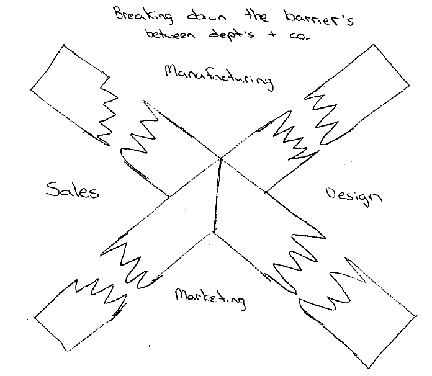 Breaking down the barrier's
between dept's + co.
Manufacturing
Sales
Design
Marketing